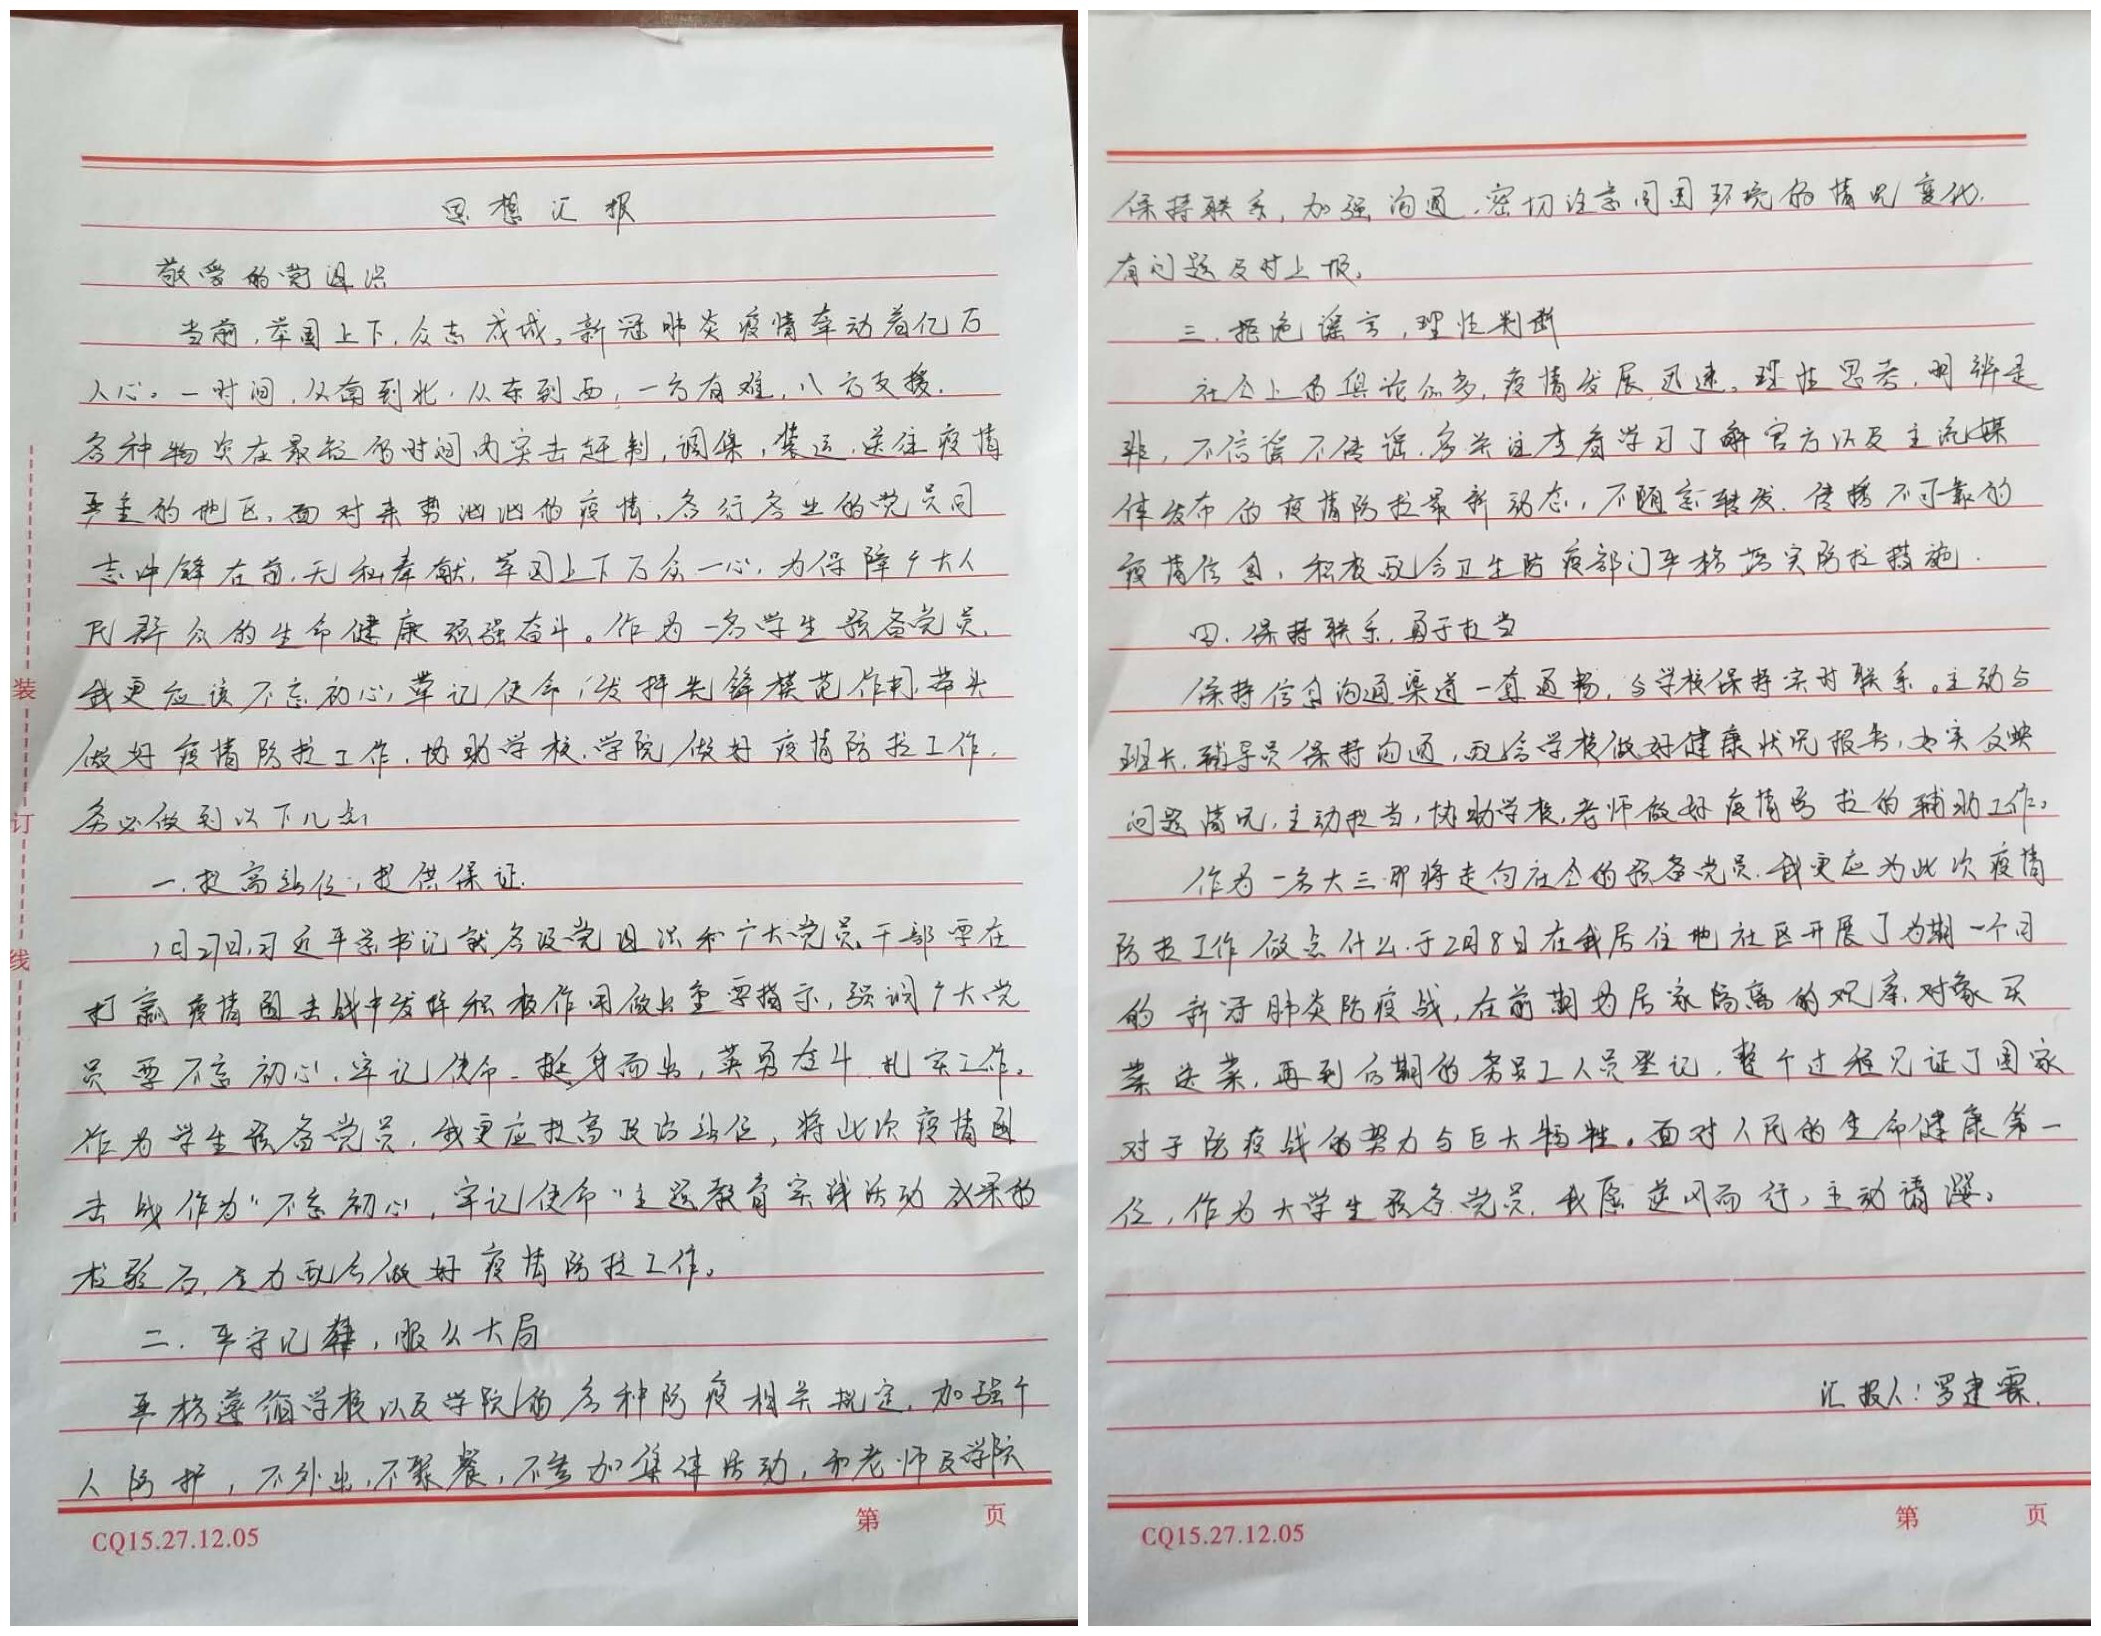 思想汇报
敬爱的党组织
当前，举国上下，众志成城。新冠肺炎疫情牵动着亿万
人心。一时间，从南到北，从东到西，一方有难，八方支援.
各种物资在最短的时间内突击赶制，调集，装运，送往疫情
严重的地区。面对来势汹汹的疫情，各行各业的党员同
志冲锋在前，无私奉献，举国上下万众一心，为保障广大人
民群众的生命健康顽强奋斗。作为一名学生预备党员，
我更应该不忘初心，牢记使命，发挥先锋模范作用，带头
做好疫情防控工作，协助学校、学院做好疫情防控工作，
务必做到以下几点，
一.提高站位，提供保证.
1月27日，习近平总书记就各级党组织和广大党员、干部要在
打赢疫情阻击战中发挥积极作用做出重要指示，强调广大党
员要不忘初心、牢记使命、挺身而出，英勇奋斗、扎实工作。
作为学生预备党员，我更应提高政治站位，将此次疫情阻
击战作为"不忘初心，牢记使命"主题教育实践活动成果的
检验石，全力配合做好疫情防控工作。
二.严守纪律，服从大局
严格遵循学校以及学院的各种防疫相关规定，加强个
人防护，不外出，不聚餐，不参加集体活动，和老师及学院
装
订
线
CQ15.27.12.05
第 页
保持联系，加强沟通，密切注意周围环境的情况变化.
有问题及时上报。
三.拒绝谣言，理性判断
社会上的舆论众多，疫情发展迅速。理性思考，明辨是
非，不信谣不传谣，多关注查看学习了解官方以及主流媒
体发布的疫情防控最新动态，不随意转发、传播不可靠的
疫情信息，积极配合卫生防疫部门严格落实防控措施.
四.保持联系，勇于担当
保持信息沟通渠道一直通畅，与学校保持实时联系。主动与
班长、辅导员保持沟通，配合学校做好健康状况报告，如实反映
问题情况，主动担当，协助学校，老师做好疫情防控的辅助工作。
作为一名大三即将走向社会的预备党员，我更应为此次疫情
防控工作做点什么.于2月8日在我居住地社区开展了为期一个月
的新冠肺炎防疫战，在前期为居家隔离的观察对象买
菜送菜，再到后期的务员工人员登记，整个过程见证了国家
对于防疫战的努力与巨大牺牲。面对人民的生命健康第一
位，作为大学生预备党员，我愿逆风而行，主动请缨。
汇报人：罗建霖.
CQ15.27.12.05
第 页